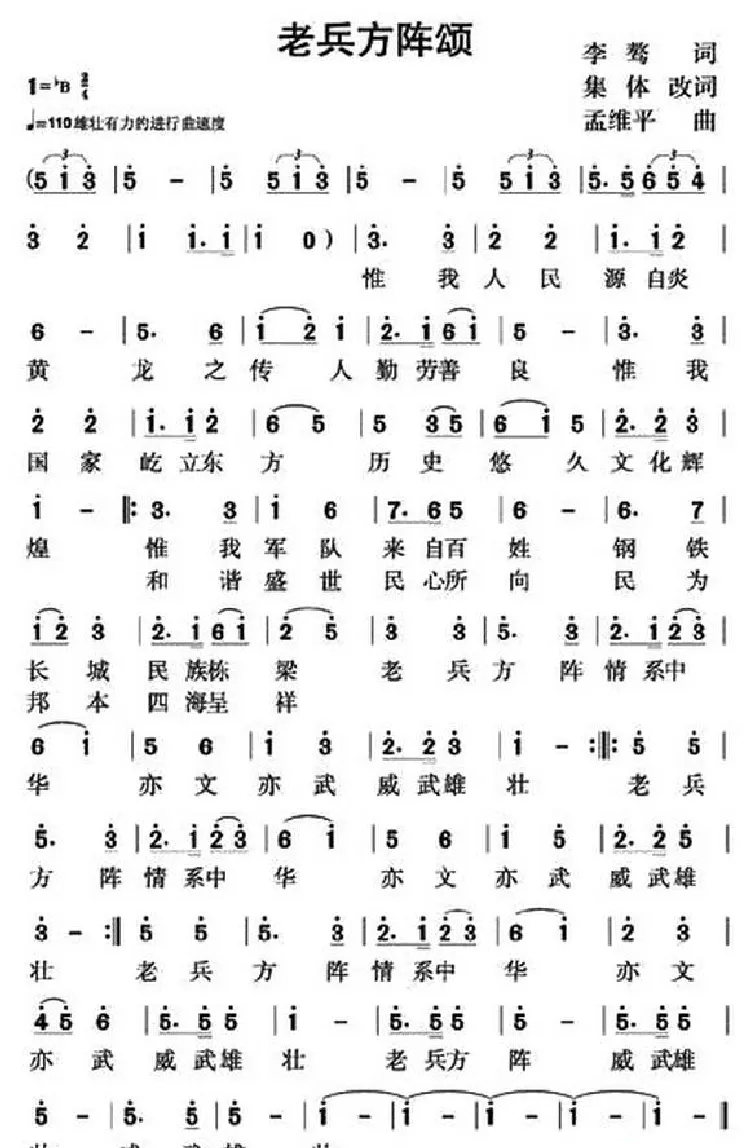 老兵方阵颂
李骜 词
1=♭B 2/4
集体 改词
♩=110雄壮有力的进行曲速度
孟维平 曲
(5 i 3 | 5 - | 5 5 i 3 | 5 - | 5 5 i 3 | 5. 5 6 5 4 |
3 2 | i i. i | i 0 ) | 3. 3 | 2 2 | i. i 2 |
惟 我 人 民 源 自炎
6 - | 5. 6 | i 2 i | 2. i 6 i | 5 - | 3. 3 |
黄 龙 之 传 人 勤 劳善 良 惟 我
2 2 | i. i 2 | 6 5 | 5 3 5 | 6 i 5 | 2. 2 3 |
国 家 屹 立东 方 历 史 悠 久 文 化 辉
i - ‖: 3. 3 | i 6 | 7. 6 5 | 6 - | 6. 7 |
煌 惟 我 军 队 来 自百 姓 钢 铁
和 谐 盛 世 民 心所 向 民 为
i 2 3 | 2. i 6 i | 2 5 | 3 3 | 5. 3 | 2. i 2 3 |
长 城 民 族栋 梁 老 兵 方 阵 情 系中
邦 本 四 海呈 祥
6 i | 5 6 | i 3 | 2. 2 3 | i - :‖: 5 5 |
华 亦 文 亦 武 威 武雄 壮 老 兵
5. 3 | 2. i 2 3 | 6 i | 5 6 | i 5 | 2. 2 5 |
方 阵 情 系中 华 亦 文 亦 武 威 武雄
3 - :‖ 5 5 | 5. 3 | 2. i 2 3 | 6 i | 2 3 |
壮 老 兵 方 阵 情 系中 华 亦 文
4 5 6 | 5. 5 5 | i - | 5. 5 5 | 5 - | 5. 5 5 |
亦 武 威 武雄 壮 老 兵方 阵 威 武雄
5 - | 5. 5 | 5 - | i - | i - | i - | i - |